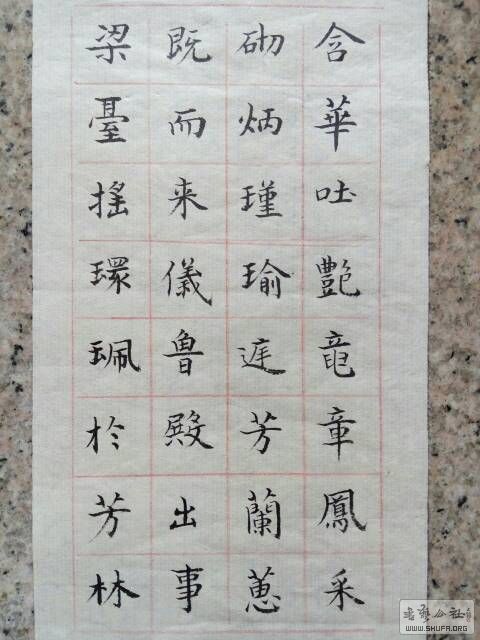 含華吐艷竜章鳳采
砌炳瑾瑜庭芳蘭蕙
既而来儀魯殿出事
梁臺搖環珮於芳林
WWW.SHUFA.ORG